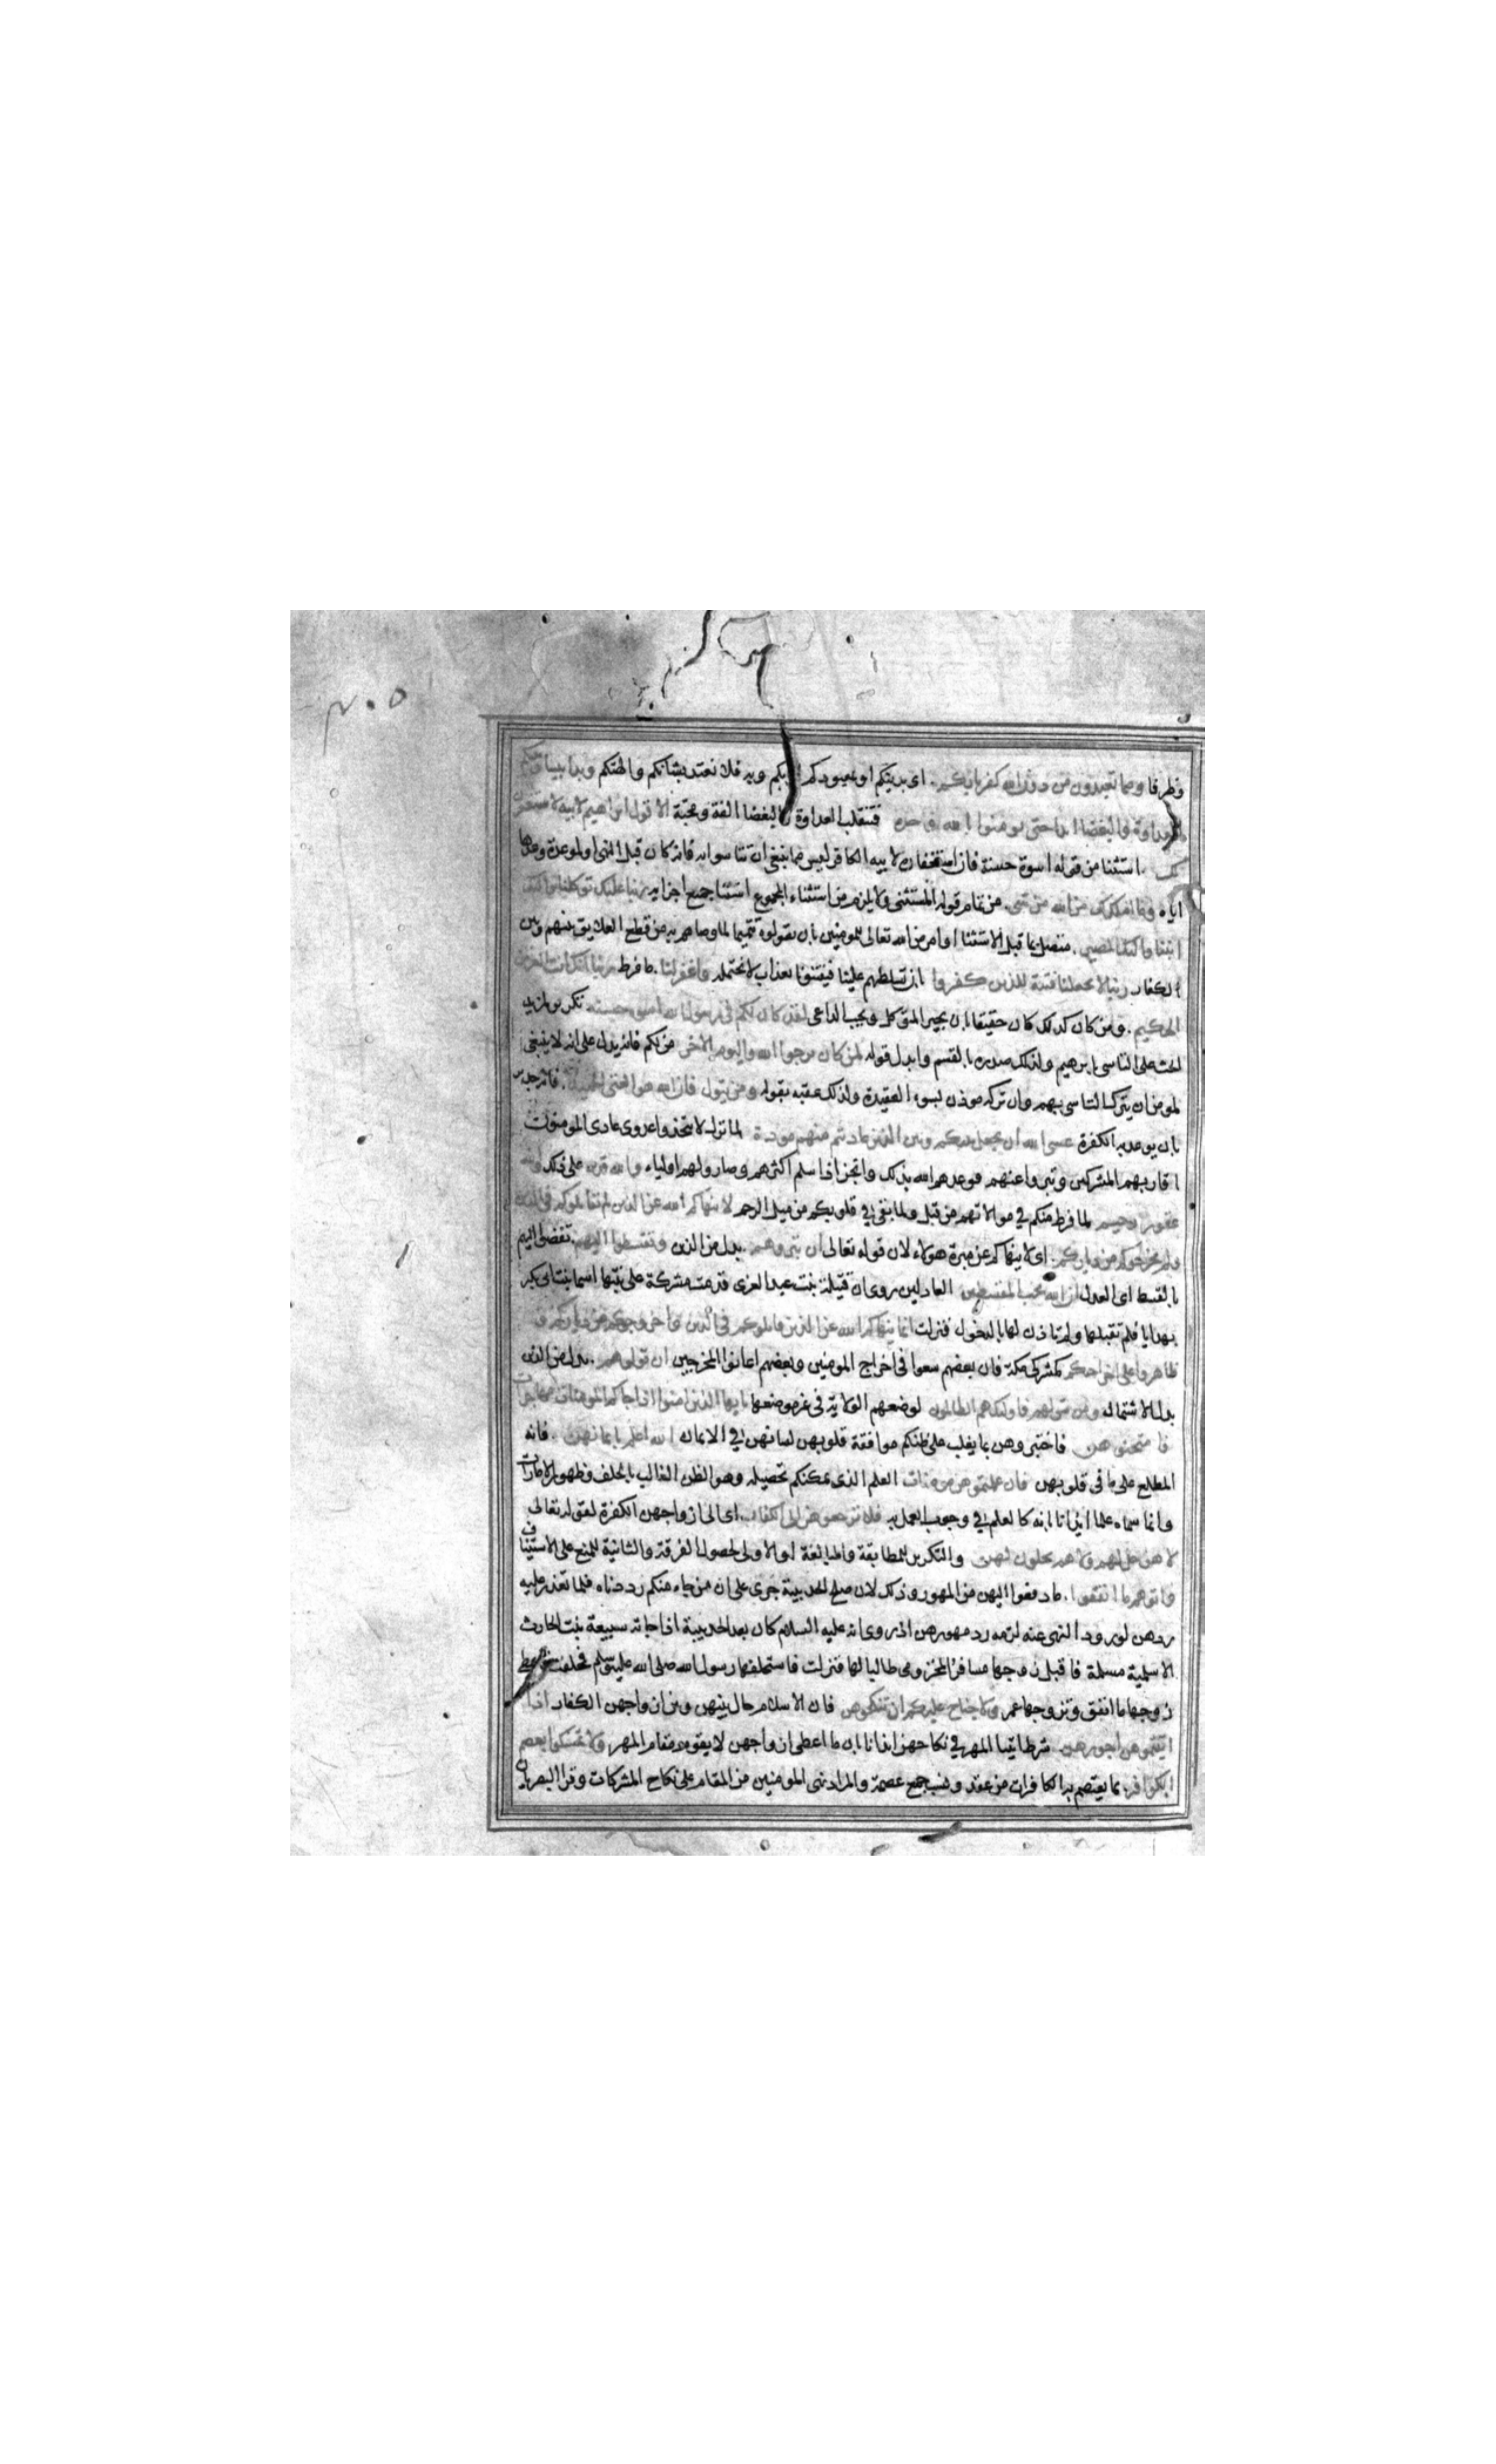 ٢٠٥
وظرفا ومما تعبدون من دون الله كفرنا بكم. اى بدينكم او بمعبودكم او بكم وبه فلا نعتد بشانكم والهتكم وبدا بيننا وبينكم
العداوة والبغضا ابدا حتى تومنوا بالله وحده فتنقلب العداوة والبغضا الفة ومحبة الا قول ابراهيم لابيه لاستغفرن
لك. استثنا من قوله اسوة حسنة فان استغفاره لابيه الكافر ليس مما ينبغى ان تتاسوا به فانه كان قبل النهى او لموعدة وعدها
اياه وما املك لك من الله من شى. من تمام قوله المستثنى ولا يلزم من استثناء المجموع استثنا جميع اجزايه ربنا عليك توكلنا واليك
انبنا واليك المصير. متصل بما قبل الاستثنا او امر من الله تعالى للمومنين بان يقولوه تتميما لما وصاهم به من قطع العلايق بينهم وبين
الكفار ربنا لا تجعلنا فتنة للذين كفروا بان تسلطهم علينا فيفتنونا بعذاب لا نحتمله واغفر لنا. ما فرط ربنا انك انت العزيز
الحكيم. ومن كان كذلك كان حقيقا بان يجير المتوكل ويجيب الداعى لقد كان لكم فى رسول الله اسوة حسنة. تكرير لمزيد
الحث على التاسى بابرهيم ولذلك صدره بالقسم وابدل قوله لمن كان يرجوا الله واليوم الاخر من لكم فانه يدل على انه لا ينبغى
لمومن ان يترك التاسى بهم وان تركه موذن بسوء العقيدة ولذلك عقبه بقوله ومن يتول فان الله هو الغنى الحميد. فانه جدير
بان يوعد به الكفرة عسى الله ان يجعل بينكم وبين الذين عاديتم منهم مودة لما نزل لا تتخذوا عدوى عادى المومنون
اقاربهم المشركين وتبروا عنهم فوعدهم الله بذلك وانجز اذا سلم اكثرهم وصاروا لهم اولياء والله قدير على ذلك والله
غفور رحيم لما فرط منكم في موالاتهم من قبل ولما بقي في قلوبكم من ميل الرحم لا ينهاكم الله عن الذين لم يقاتلوكم فى الدين
ولم يخرجوكم من دياركم. اى لا ينهاكم عن مبرة هولاء لان قوله تعالى ان تبروهم. بدل من الذين وتقسطوا اليهم. تفضوا اليهم
بالقسط اى العدل ان الله يحب المقسطين العادلين روى ان قتيلة بنت عبد العزى قدمت مشركة على بنتها اسما بنت ابى بكر
بهدايا فلم تقبلها ولم تاذن لها بالدخول فنزلت انما ينهاكم الله عن الذين قاتلوكم فى الدين واخرجوكم من دياركم و
ظاهروا على اخراجكم كمشركى مكة فان بعضهم سعوا فى اخراج المومنين وبعضهم اعانوا المخرجين ان تولوهم. بدل من الذين
بدل الاشتمال ومن يتولهم فاولئك هم الظالمون لوضعهم الولاية فى غير موضعها يا يها الذين امنوا اذا جاكم المومنات مهاجرات
فامتحنوهن فاختبروهن بما يغلب على ظنكم موافقة قلوبهن لسانهن في الايمان الله اعلم بايمانهن. فانه
المطلع على ما فى قلوبهن فان علمتموهن مومنات العلم الذى يمكنكم تحصيله وهو الظن الغالب بالحلف وظهور الامارات
وانما سماه علما ايذانا بانه كالعلم في وجوب العمل به فلا ترجعوهن الى الكفار. اى الى ازواجهن الكفرة لقوله تعالى
لا هن حل لهم ولا هم يحلون لهن والتكرير للمطابقة والمبالغة او الاولى لحصول الفرقة والثانية للمنع على الاستيناف
واتوهم ما انفقوا. ما دفعوا اليهن من المهور وذلك لان صلح الحديبية جرى على ان من جاء منكم رددناه فلما تعذر عليه
ردهن لورود النهى عنه لزمه رد مهورهن اذ روى انه عليه السلام كان بعد الحديبية اذا جاته سبيعة بنت الحارث
الاسلمية مسلمة فاقبل زوجها مسافر المخزومى طالبا لها فنزلت فاستحلفها رسول الله صلى الله عليه وسلم فحلفت فاعطى
زوجها ما انفق وتزوجها عمر ولا جناح عليكم ان تنكحوهن فان الاسلام حال بينهن وبين ازواجهن الكفار اذا
اتيتموهن اجورهن شرط ايتا المهر في نكاحهن ايذانا بان ما اعطى ازواجهن لا يقوم مقام المهر ولا تمسكوا بعصم
الكوافر. بما يعتصم به الكافرات من عقد وسبب جمع عصمة والمراد نهى المومنين من المقام على نكاح المشركات وقرا البصريان